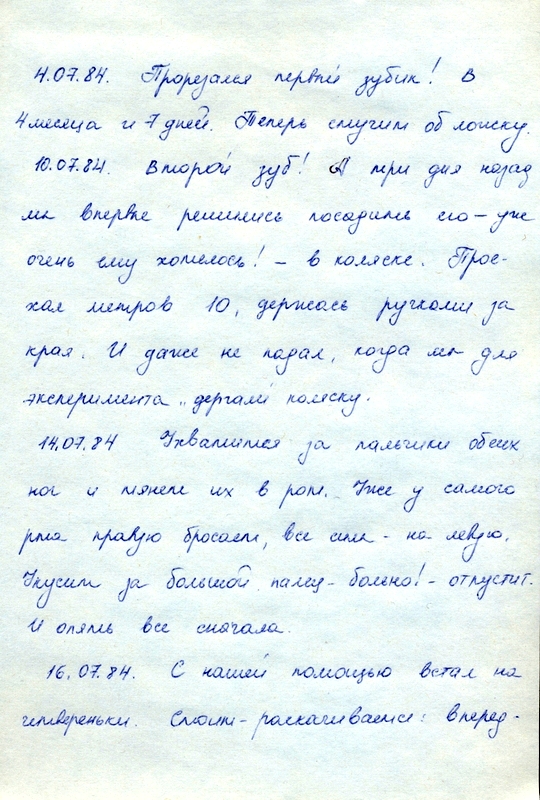 4.07.84. Прорезался первый зубик! В
4 месяца и 7 дней. Теперь стучит об ложку.
10.07.84. Второй зуб! А три дня назад
мы впервые решились посадить его – уж
очень ему хотелось! – в коляске. Прое-
хал метров 10, держась ручками за
края. И даже не падал, когда мы для
эксперимента дергали коляску.
14.07.84 Ухватился за пальчики обеих
ног и тянет их в рот. Уже у самого
рта правую бросает, все силы – на левую.
Укусит за большой палец – больно! – отпустит.
И опять все сначала.
16.07.84. С нашей помощью встал на
четвереньки. Стоит – раскачивается: вперед-